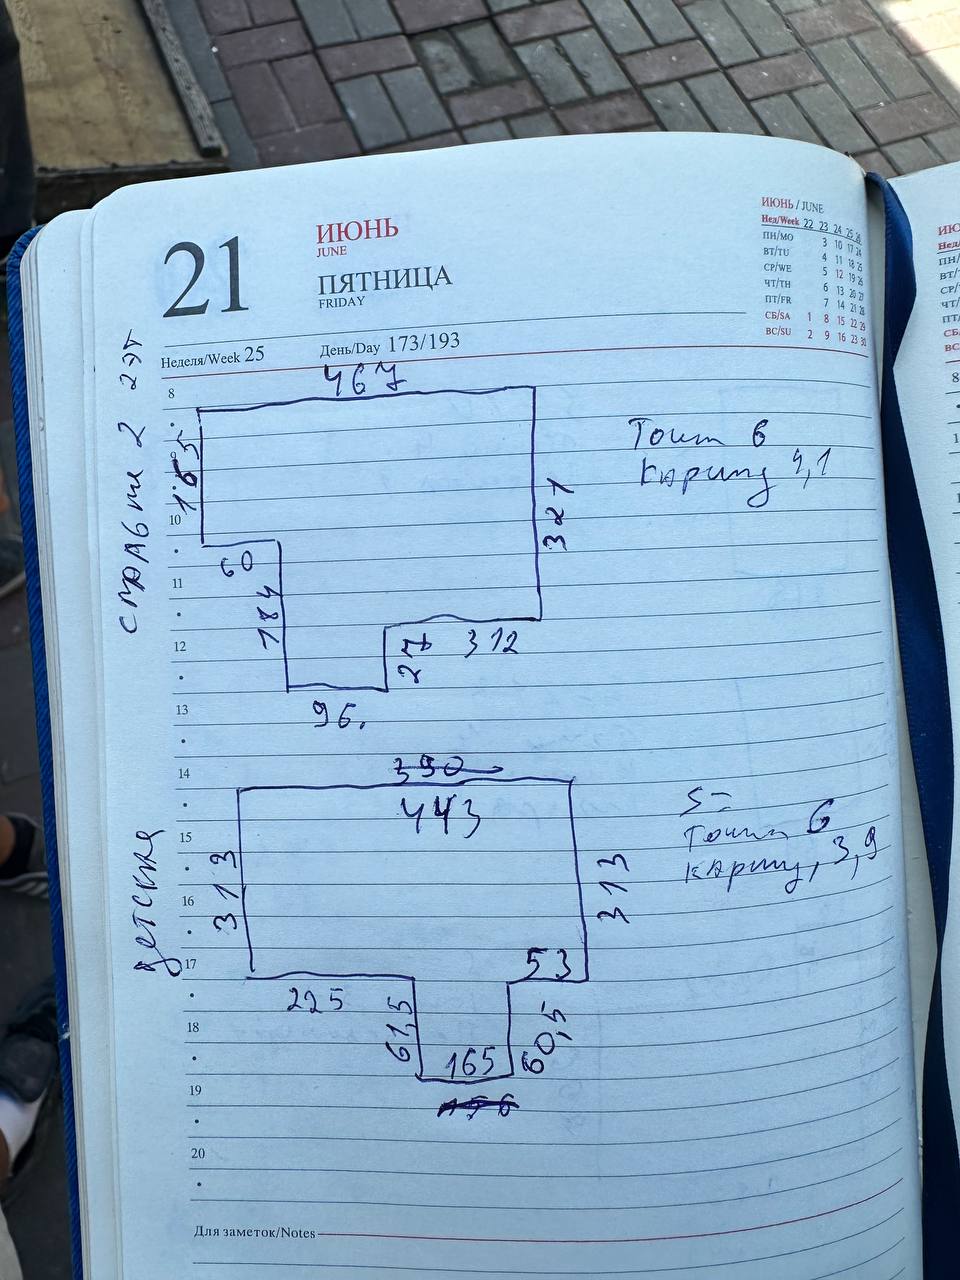 21
ИЮНЬ
JUNE
ПЯТНИЦА
FRIDAY
Неделя/Week 25
День/Day 173/193
ИЮНЬ / JUNE
Нед/Week 22 23 24 25 26
ПН/MO 3 10 17 24
ВТ/TU 4 11 18 25
СР/WE 5 12 19 26
ЧТ/TH 6 13 20 27
ПТ/FR 7 14 21 28
СБ/SA 1 8 15 22 29
ВС/SU 2 9 16 23 30
2 эт
8
467
9
10
60
321
11
184
12
27
312
96.
13
6
4,1
14
390
443
15
313
313
16
детская
17
53
225
61,5
165
60,5
18
19
20
S=
6
3,9
Для заметок/Notes
ИЮ
Нед/
ПН/
ВТ/
СР/
ЧТ/
ПТ/
СБ
ВС
8